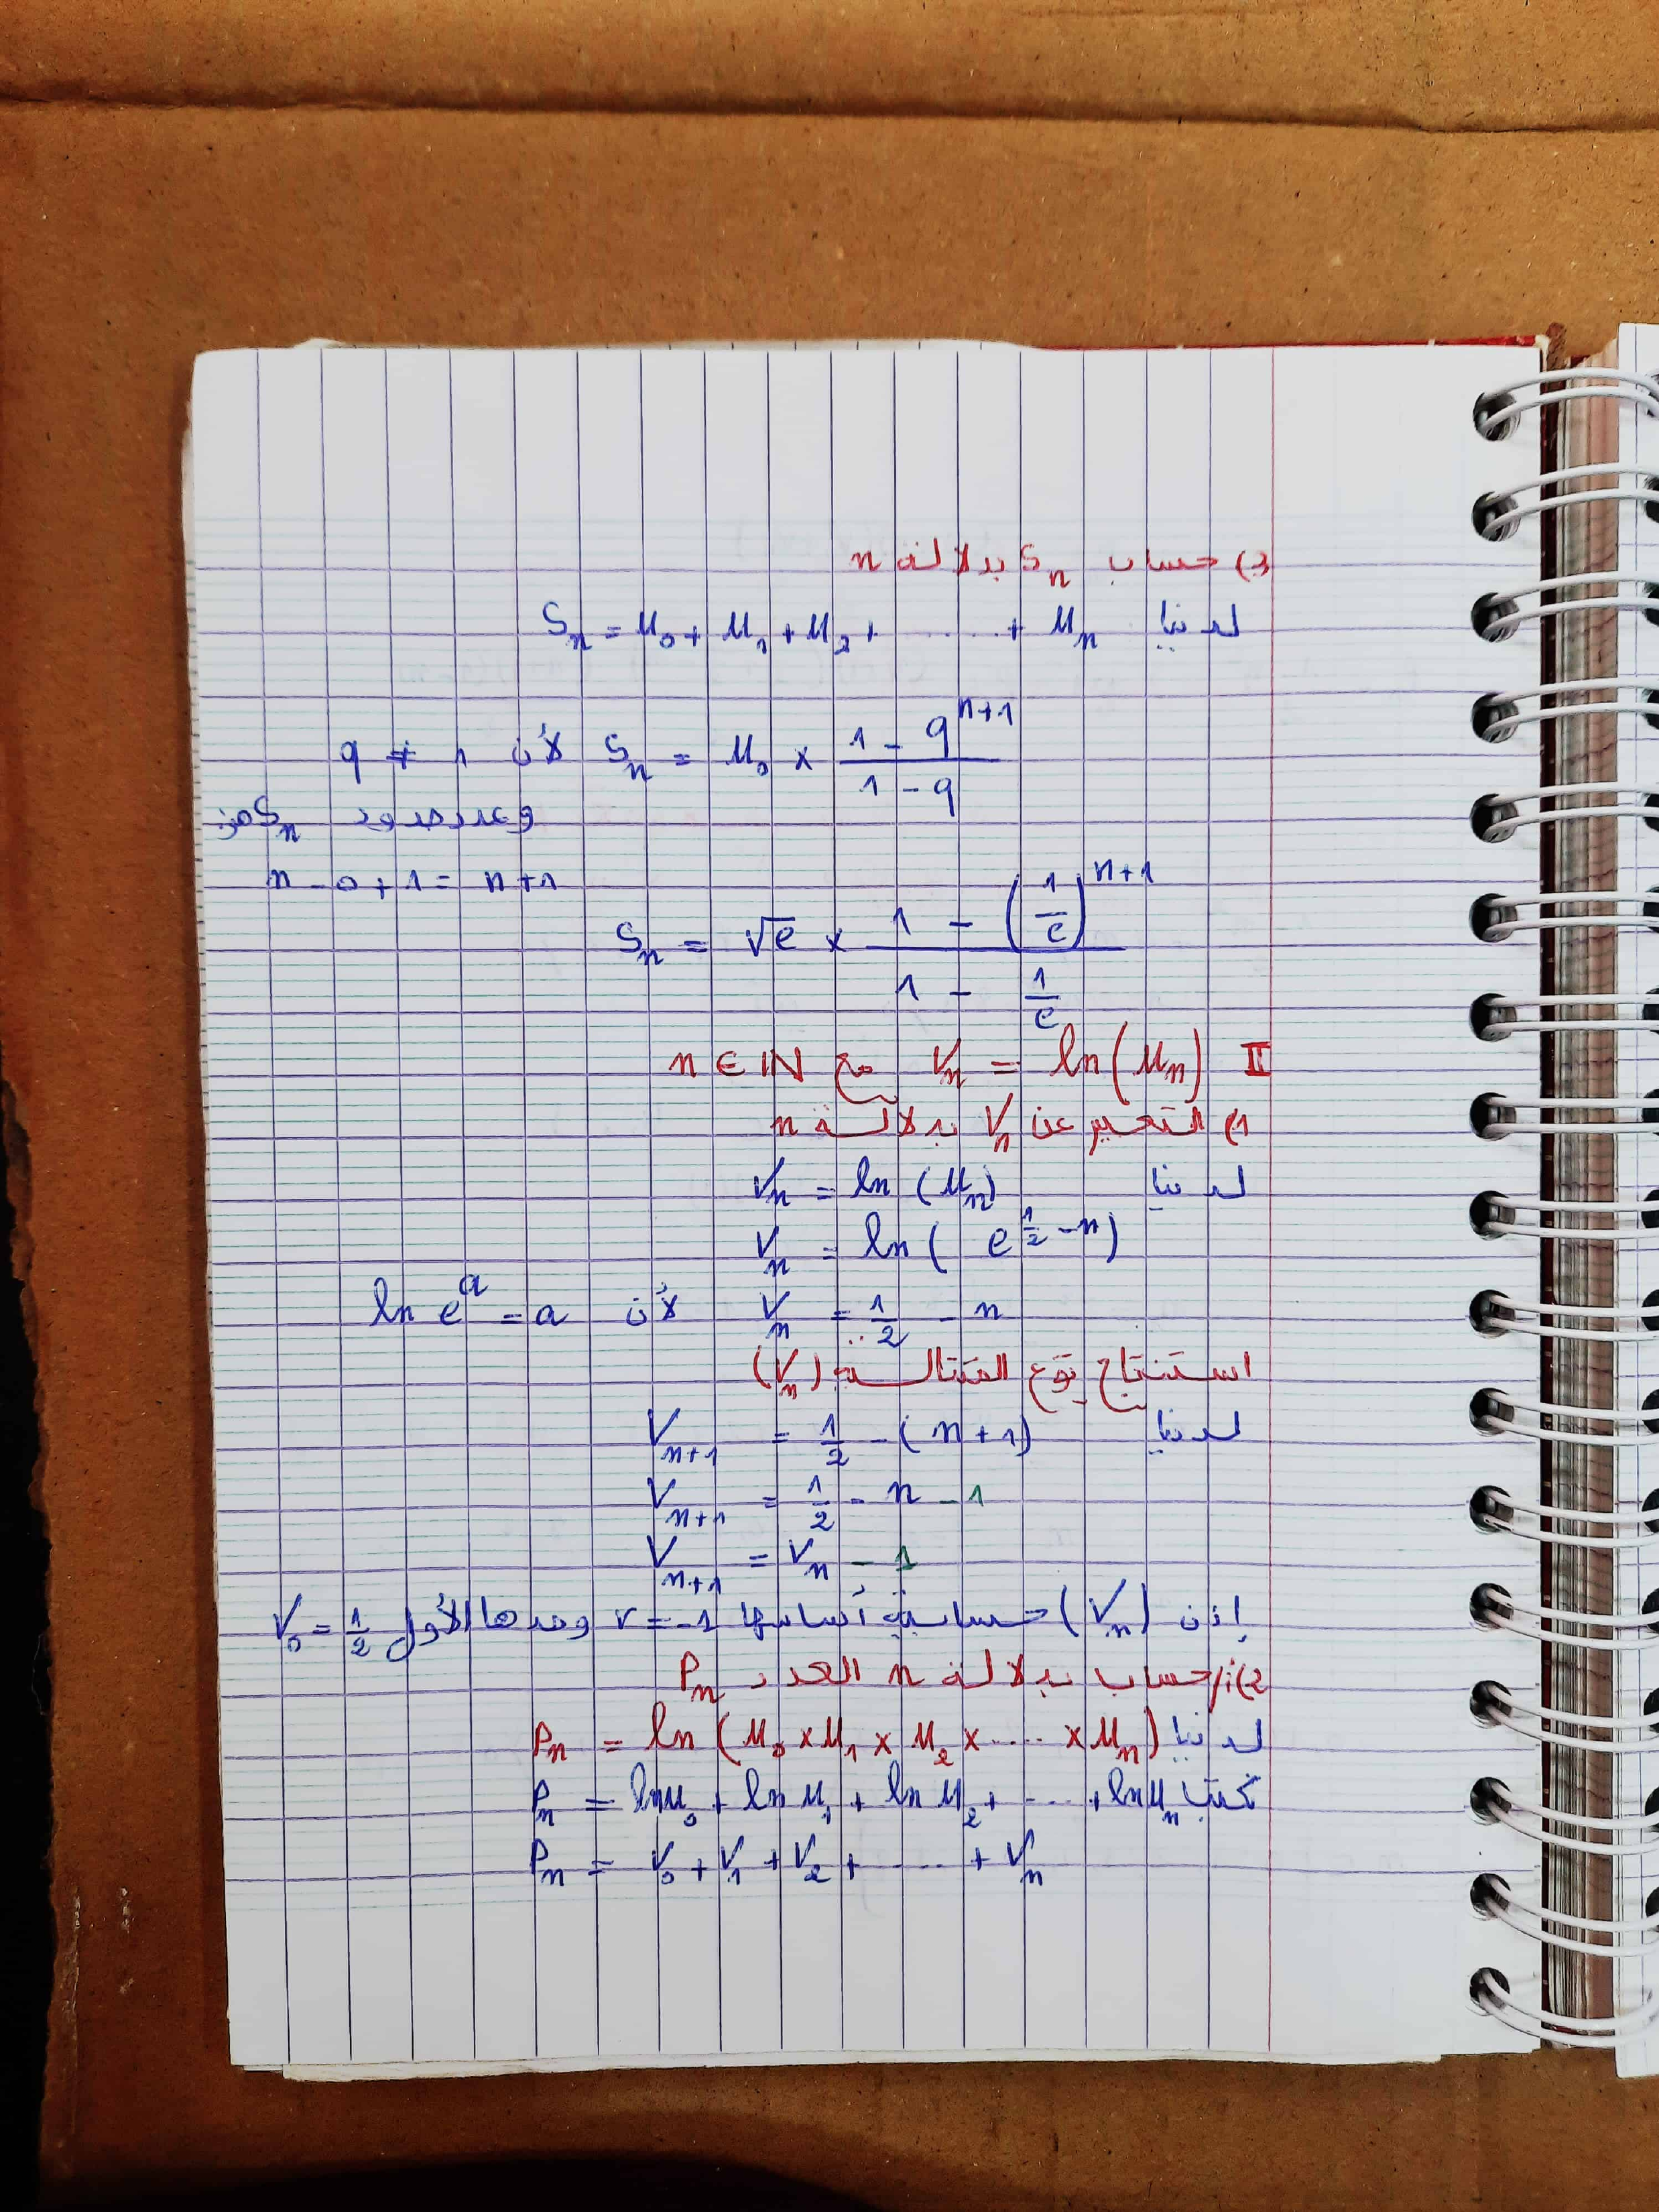 3) حساب Sₙ بدلالة n
لدينا Sₙ = u₀ + u₁ + u₂ + ...... + uₙ
Sₙ = u₀ × (1 - q^(n+1))/(1 - q) لأن q ≠ 1
وعدد حدود Sₙ هو:
n - 0 + 1 = n + 1
Sₙ = √e × (1 - (1/e)^(n+1))/(1 - 1/e)
II Vₙ = ln(uₙ) مع n ∈ IN
1) التعبير عن Vₙ بدلالة n
لدينا Vₙ = ln(uₙ)
Vₙ = ln(e^(1/2 - n))
Vₙ = 1/2 - n لأن ln e^a = a
استنتاج نوع المتتالية (Vₙ)
لدينا Vₙ₊₁ = 1/2 - (n + 1)
Vₙ₊₁ = 1/2 - n - 1
Vₙ₊₁ = Vₙ - 1
إذن (Vₙ) حسابية أساسها r = -1 وحدها الأول V₀ = 1/2
2) أ/ حساب بدلالة n العدد Pₙ
لدينا Pₙ = ln(u₀ × u₁ × u₂ × ..... × uₙ)
نكتب Pₙ = ln u₀ + ln u₁ + ln u₂ + .... + ln uₙ
Pₙ = V₀ + V₁ + V₂ + ..... + Vₙ